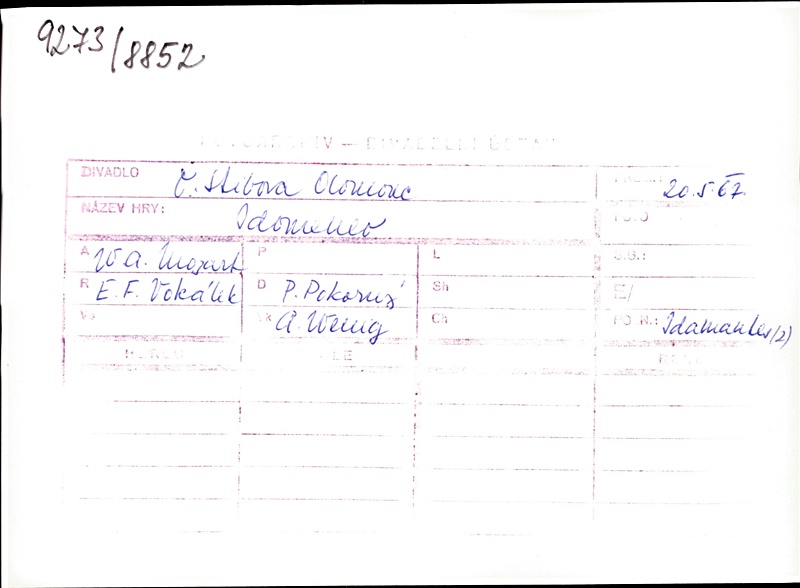 9273/8852
FOTOARCHIV – DIVADELNÍ ÚSTAV
DIVADLO O. Stibora Olomouc 20.5.67
NÁZEV HRY: Idomeneo FOTO
A W. A. Mozart P L S.G.:
R E. F. Vokálek D P. Pokorný Sh E/
Vk A. Wenig Ch PO N.: Idamantes (2)